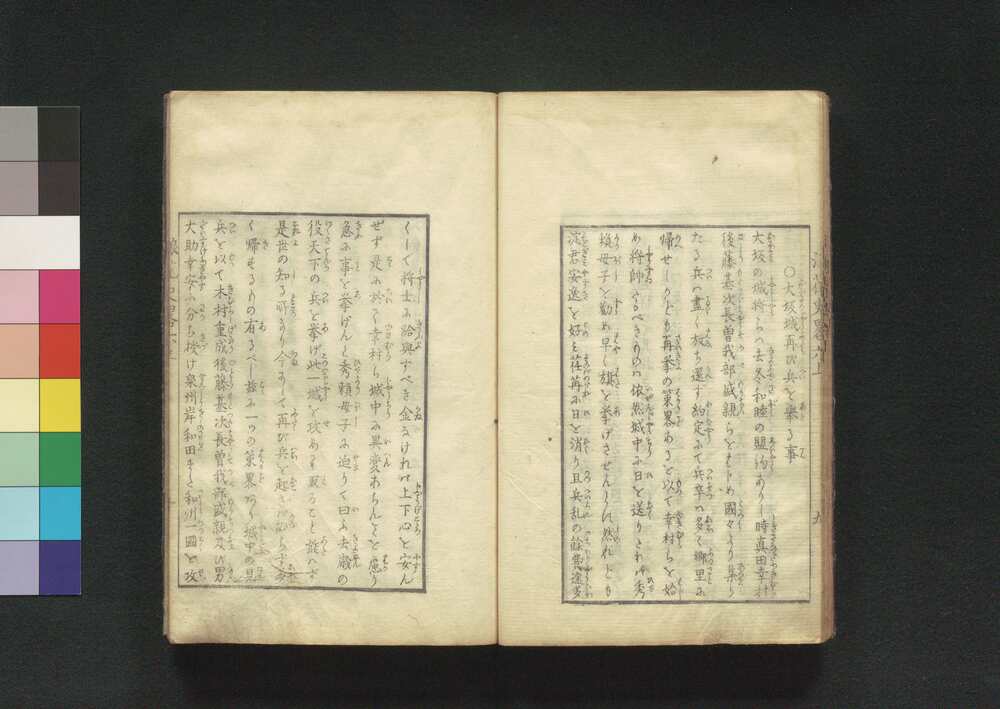 ○大坂城再び兵を挙る事
大坂の城将らハ去冬和睦の盟約ありし時真田幸村
後藤基次長曽我部盛親らをはじめ國々より集り
たる兵ハ盡く放ち還す約定にて兵卒ハ多く郷里に
帰せしかども再挙の策畧あるを以て幸村らを始
め将帥たるべきものハ依然城中に日を送りされバ秀
頼母子を勧め早く旗を挙げさせんとハ然れども
淀君安逸を好を荏苒に日を消り且兵乱の餘費途多
くして将士に給與すべき金なけれバ上下心を安ん
せず是に於て幸村ら城中に異変あらんことを慮り
急に事を挙げんと秀頼母子に迫りて曰ふ去歳の
役天下の兵を挙げ此一城を攻めて取ること能ハず
是世の知る所なり今にして再び兵を起さバ
く帰せるもの有るべし茲に一つの策畧あり城中の見
兵を以て木村重成後藤基次長曽我部盛親及び男
大助幸安に分ち授け泉州岸和田また和州一国を攻